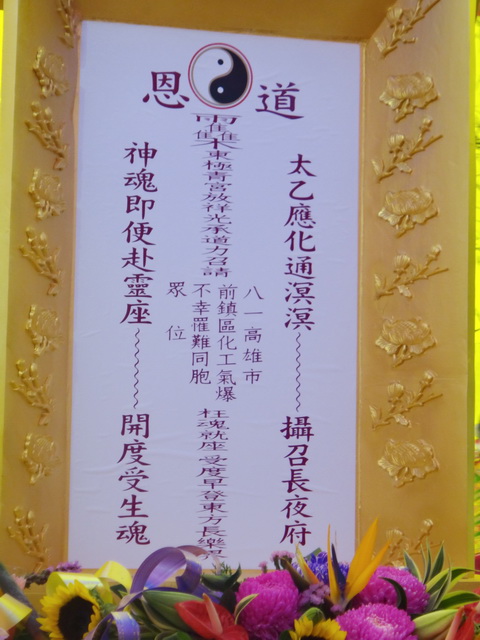 道恩
太乙應化通溟溟
攝召長夜府
東極青宮放祥光承道力召請
八一高雄市
前鎮區化工氣爆
不幸罹難同胞
眾位
枉魂就座受度早登東方長樂界
神魂即便赴靈座
開度受生魂